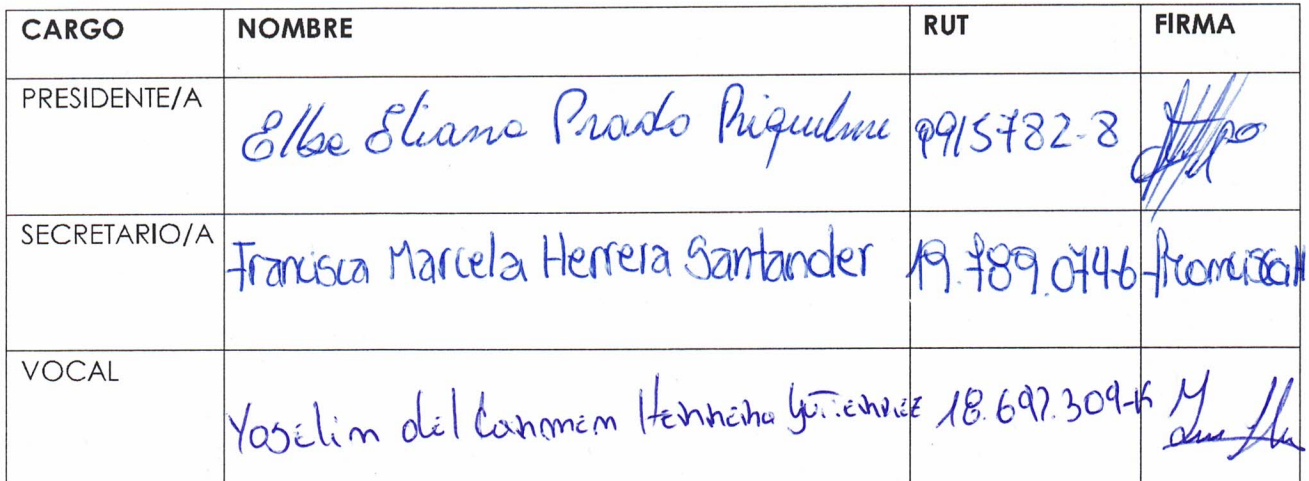 CARGO NOMBRE RUT FIRMA
PRESIDENTE/A Elba Eliana Prado Riquelme 9915782-8
SECRETARIO/A Francisca Marcela Herrera Santander 19.789.074-6 Francisca H
VOCAL Yoselin del Carmen Herrera Gutierrez 18.697.309-K